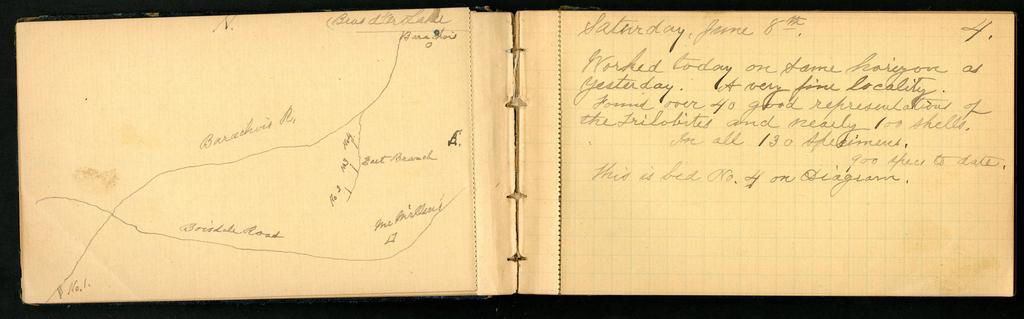 N.
Bras d'Or Lake
Barachois
Barachois R.
East Branch
No 4
No 3
No 2
E.
McMillan's
Boisdale Road
No. 1.
Saturday, June 8th. 4.
Worked today on same horizon as
yesterday. A very fine locality.
Found over 40 good representations of
the Trilobites and nearly 100 shells.
In all 130 specimens.
900 specs to date.
This is bed No. 4 on Diagram.